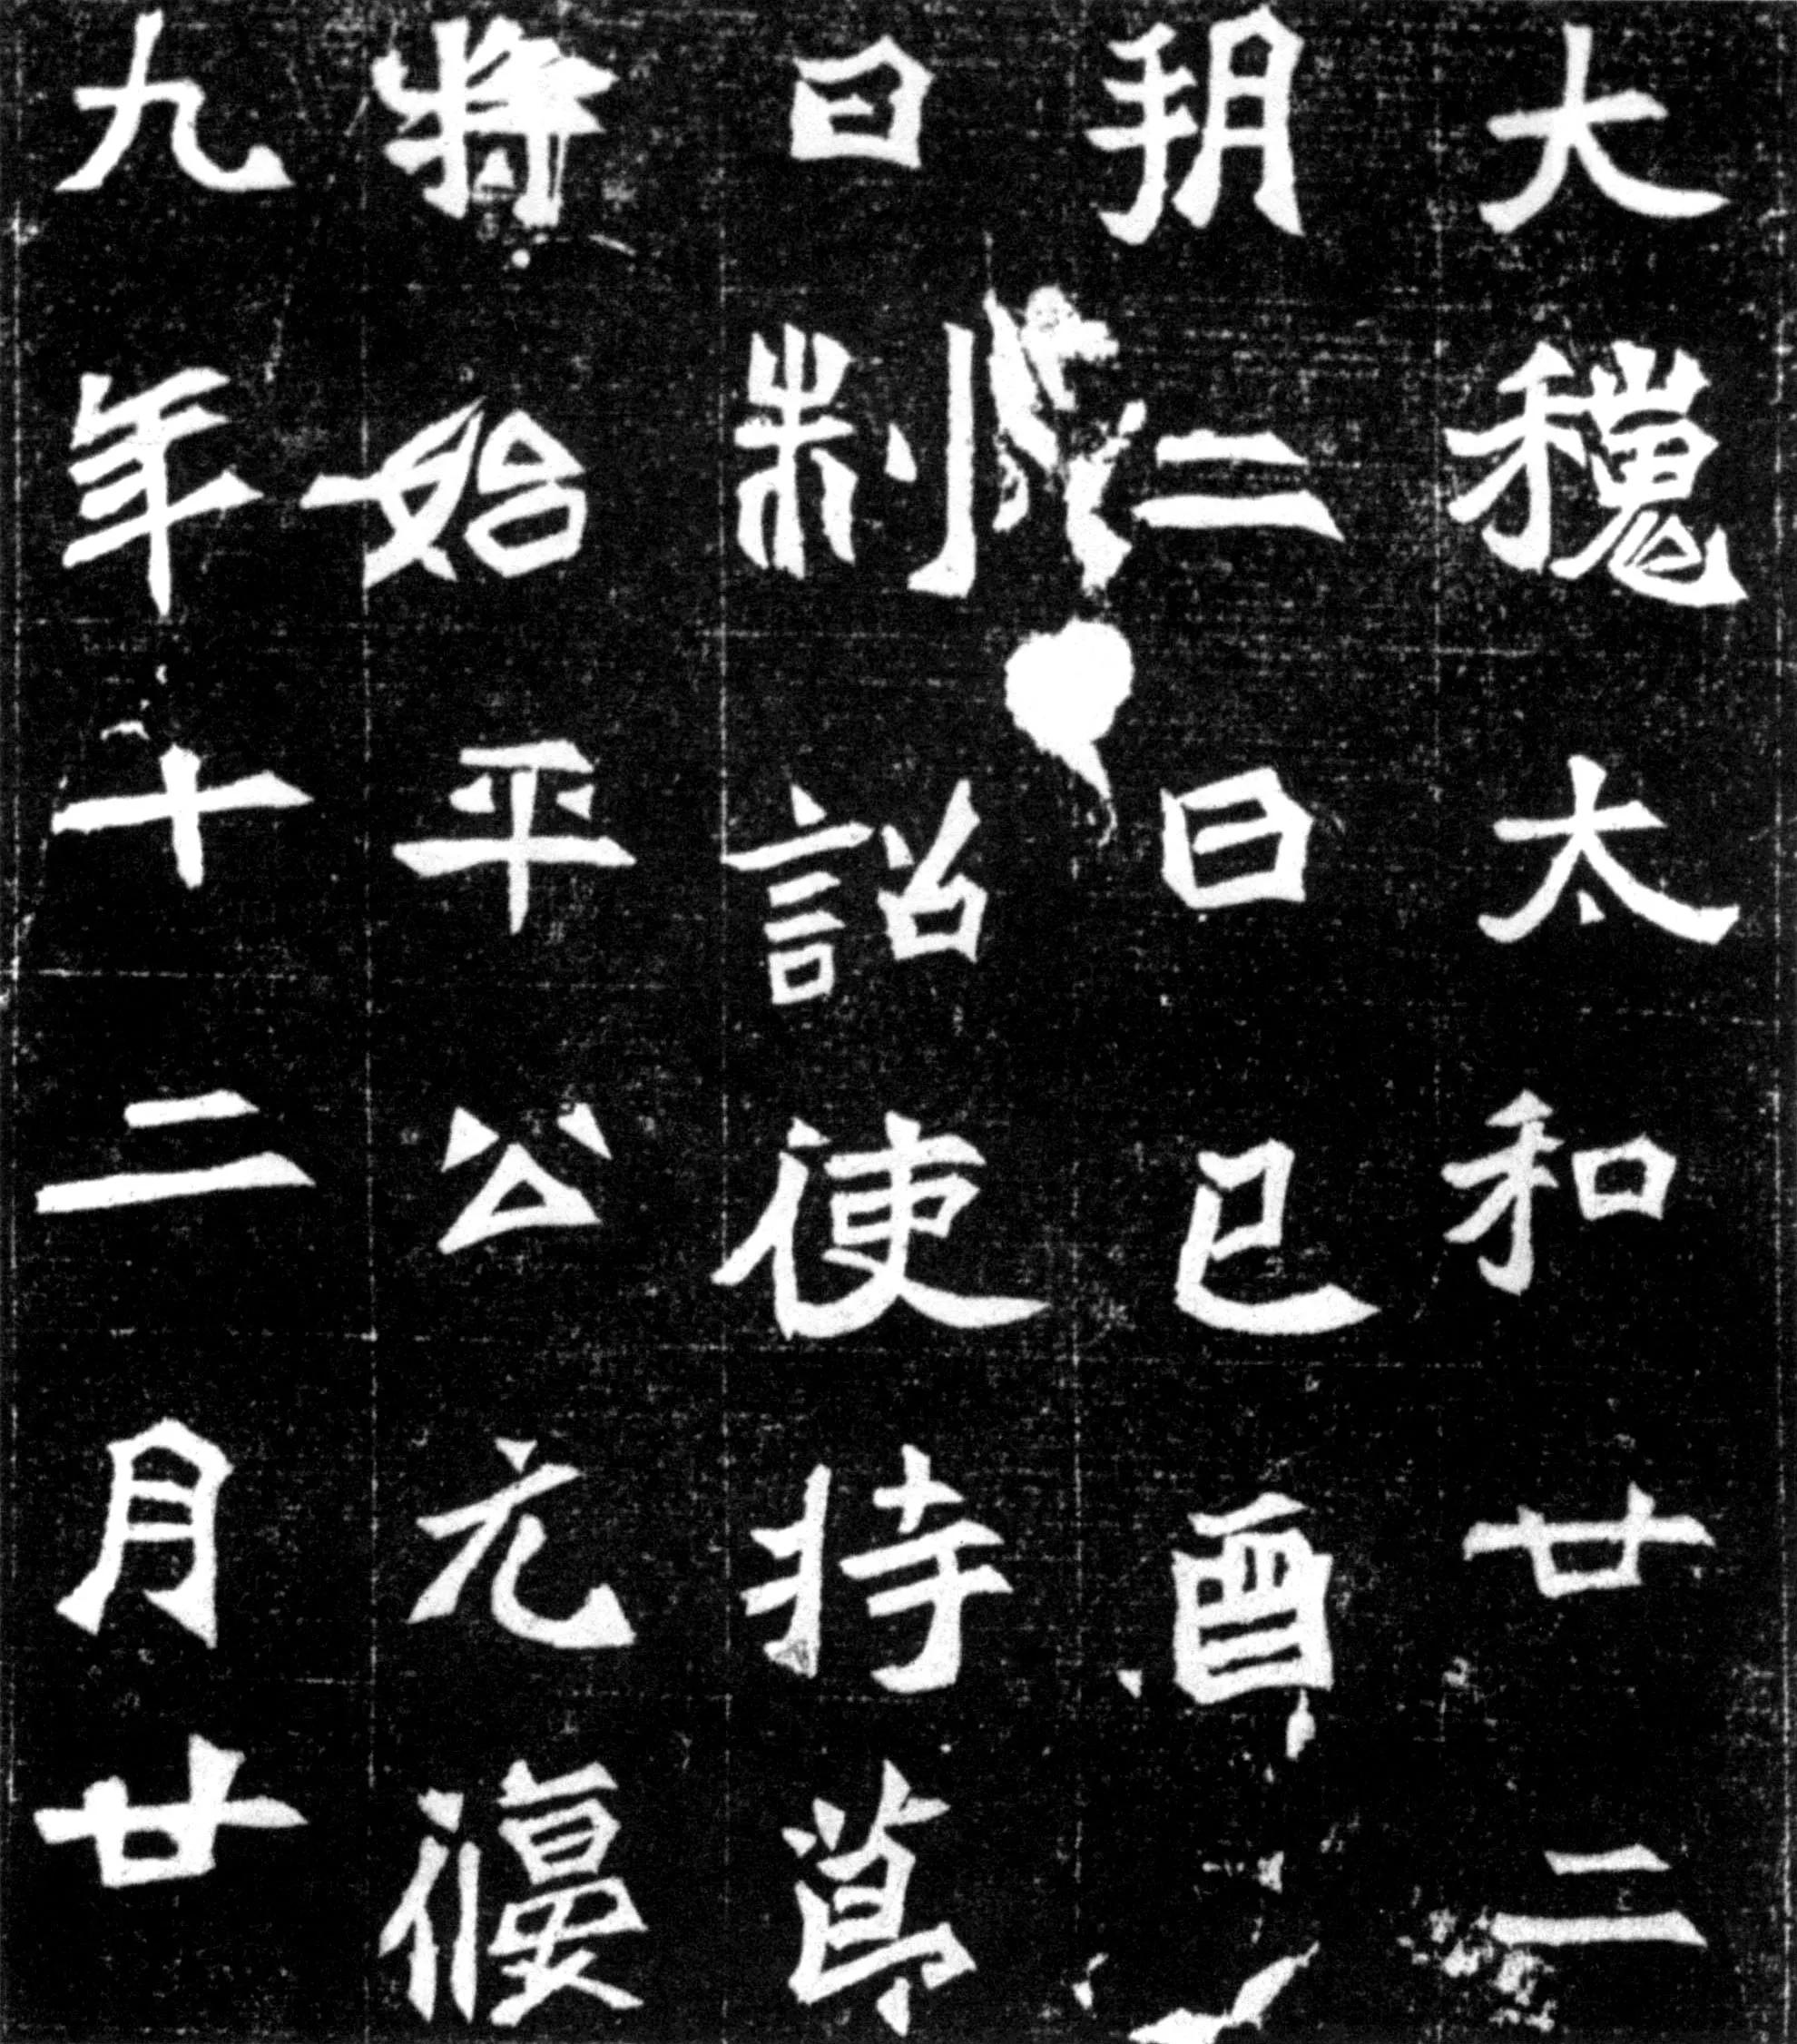 大魏太和廿二
朔二日己酉
曰制詔使持節
將始平公元偃
九年十二月廿